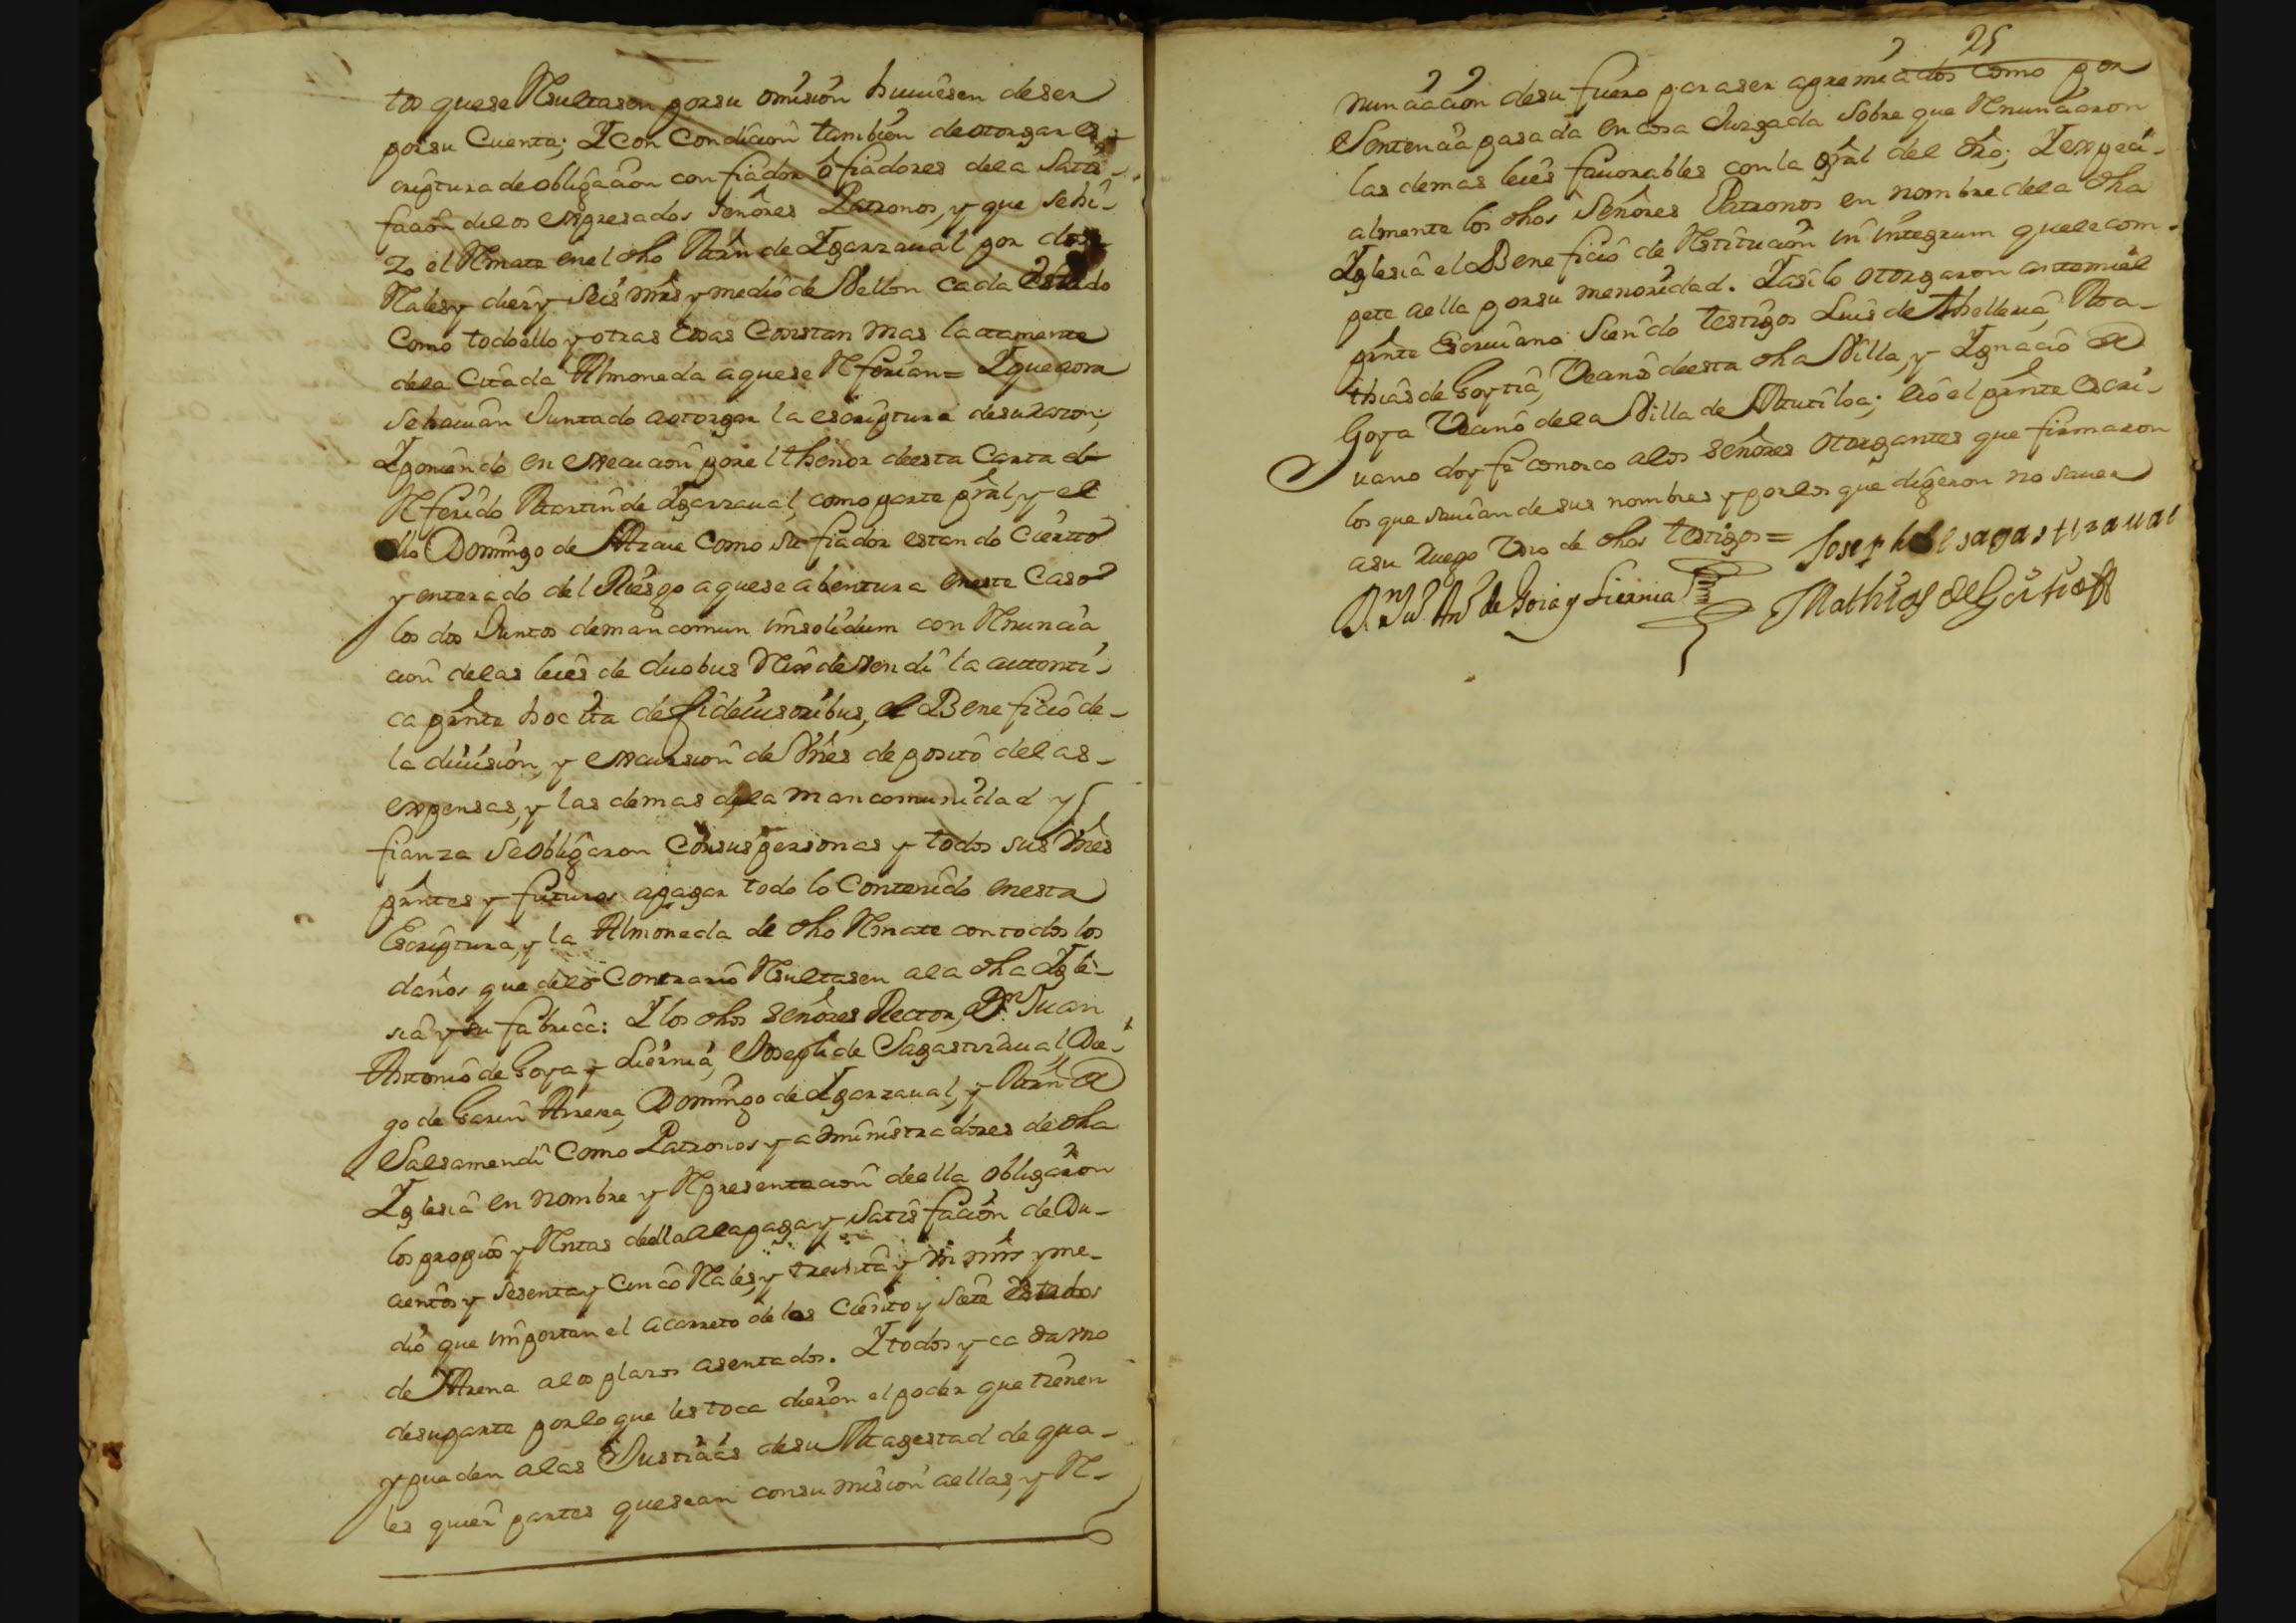 tos que se Resultasen por su omision huuiesen de ser
por su Cuenta; Y con Condicion tambien de otorgar es-
criptura de obligacion con fiador ô fiadores de la Satis-
facion de los expresados Señores Patronos, y que se hi-
zo el Remate en el dho Mrn de Ygarzaual por dos
Reales y diez y seis mrs y medio de Vellon cada Estado
Como todo ello y otras Cosas Constan mas lactamente
de la Citada Almoneda a que se Referian = Y que aora
se hauian Juntado a otorgar la escriptura de su razon;
Y poniendo en execucion por el thenor de esta Carta el
Referido Martin de Ygarzaual, como parte prâl, y el
dho Domingo de Araue como su fiador estando Cierto
y enterado del Riesgo a que se abentura en este Caso
los dos Juntos de mancomun insolidum con Renuncia
cion de las leies de duobus Rex devendi la autenti-
ca prnte hoc ita de fideiusoribus, el Beneficio de-
la diuision, y excursion de Vnes deposito de las-
expensas, y las demas de la mancomunidad y
fianza se obligaron con sus personas y todos sus Vnes
prntes y futuros a pagar todo lo Contenido en esta
Escriptura, y la Almoneda de dho Remate con todos los
daños que de lo Contrario Resultasen a la dha Ygle-
sia y su fabrica: Y los dhos Señores Rector, Dn Juan
Antonio de Goya y Liernia, Joseph de Sagastizaual, Die-
go de Garin Arrera, Domingo de Ygarzaual, y Mrn de
Salsamendi Como Patronos y administradores de dha
Yglesia en nombre y Representacion de ella obligaron
los propios y Rentas de ella a la paga y satisfacion de Du-
cientos y sesenta y Cinco Reales, y treinta y vn mrs y me-
dio que importan el acarreto de los Ciento y siete estados
de Arena a los plazos asentados. Y todos y cada vno
de su parte por lo que les toca dieron el poder que tienen
y pueden a las Justicias de su Magestad de qua-
lesquier partes que sean con sumision a ellas, y Re-
25
nunciacion de su fuero para ser apremiados como por
Sentencia pasada en cosa Juzgada sobre que Renunciaron
las demas leies fauorables con la grâl del dro; Y expeci-
almente los dhos Señores Patronos en nombre de la dha
Yglesia el Beneficio de Restitucion in integrum que le com-
pete a ella por su menoridad. Y asi lo otorgaron ante mi el
prnte Escriuano siendo testigos Luis de Thelleria, Ma-
thias de Goytia, Vecinos de esta dha Villa, y Ygnacio de
Goya Vecino de la Villa de Mutiloa; e io el prnte escri-
uano doy fe conozco a los señores otorgantes que firmaron
los que sauian de sus nombres y por los que digeron no sauer
a su ruego Vno de dhos testigos =
Joseph de sagastizaual
Dn Jun Anto de Goia y Liernia
Mathias de Goitia